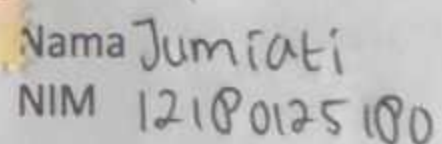 Nama Jumiati
NIM 12180125180